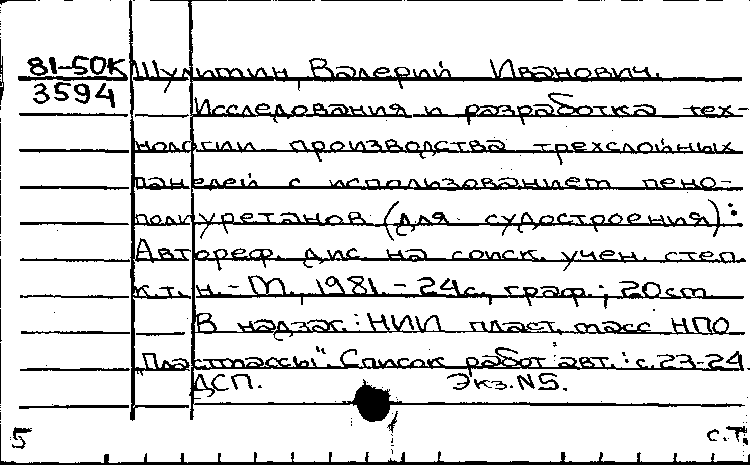 81-50К Шулитин, Валерий Иванович.
3594
Исследования и разработка тех-
нологии производства трехслойных
панелей с использованием пено-
полиуретанов (для судостроения):
Автореф. дис. на соиск. учен. степ.
к.т.н. - М., 1981. - 24с., граф.; 20 см
В надзаг.: НИИ пласт. масс НПО
"Пластмассы". Список работ авт.: с. 23-24.
ДСП. Экз. N5.
5 с.т.